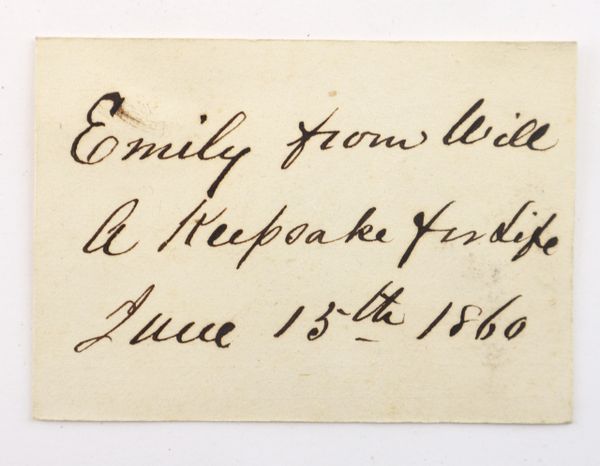 Emily from Will
A Keepsake for Life
June 15th 1860